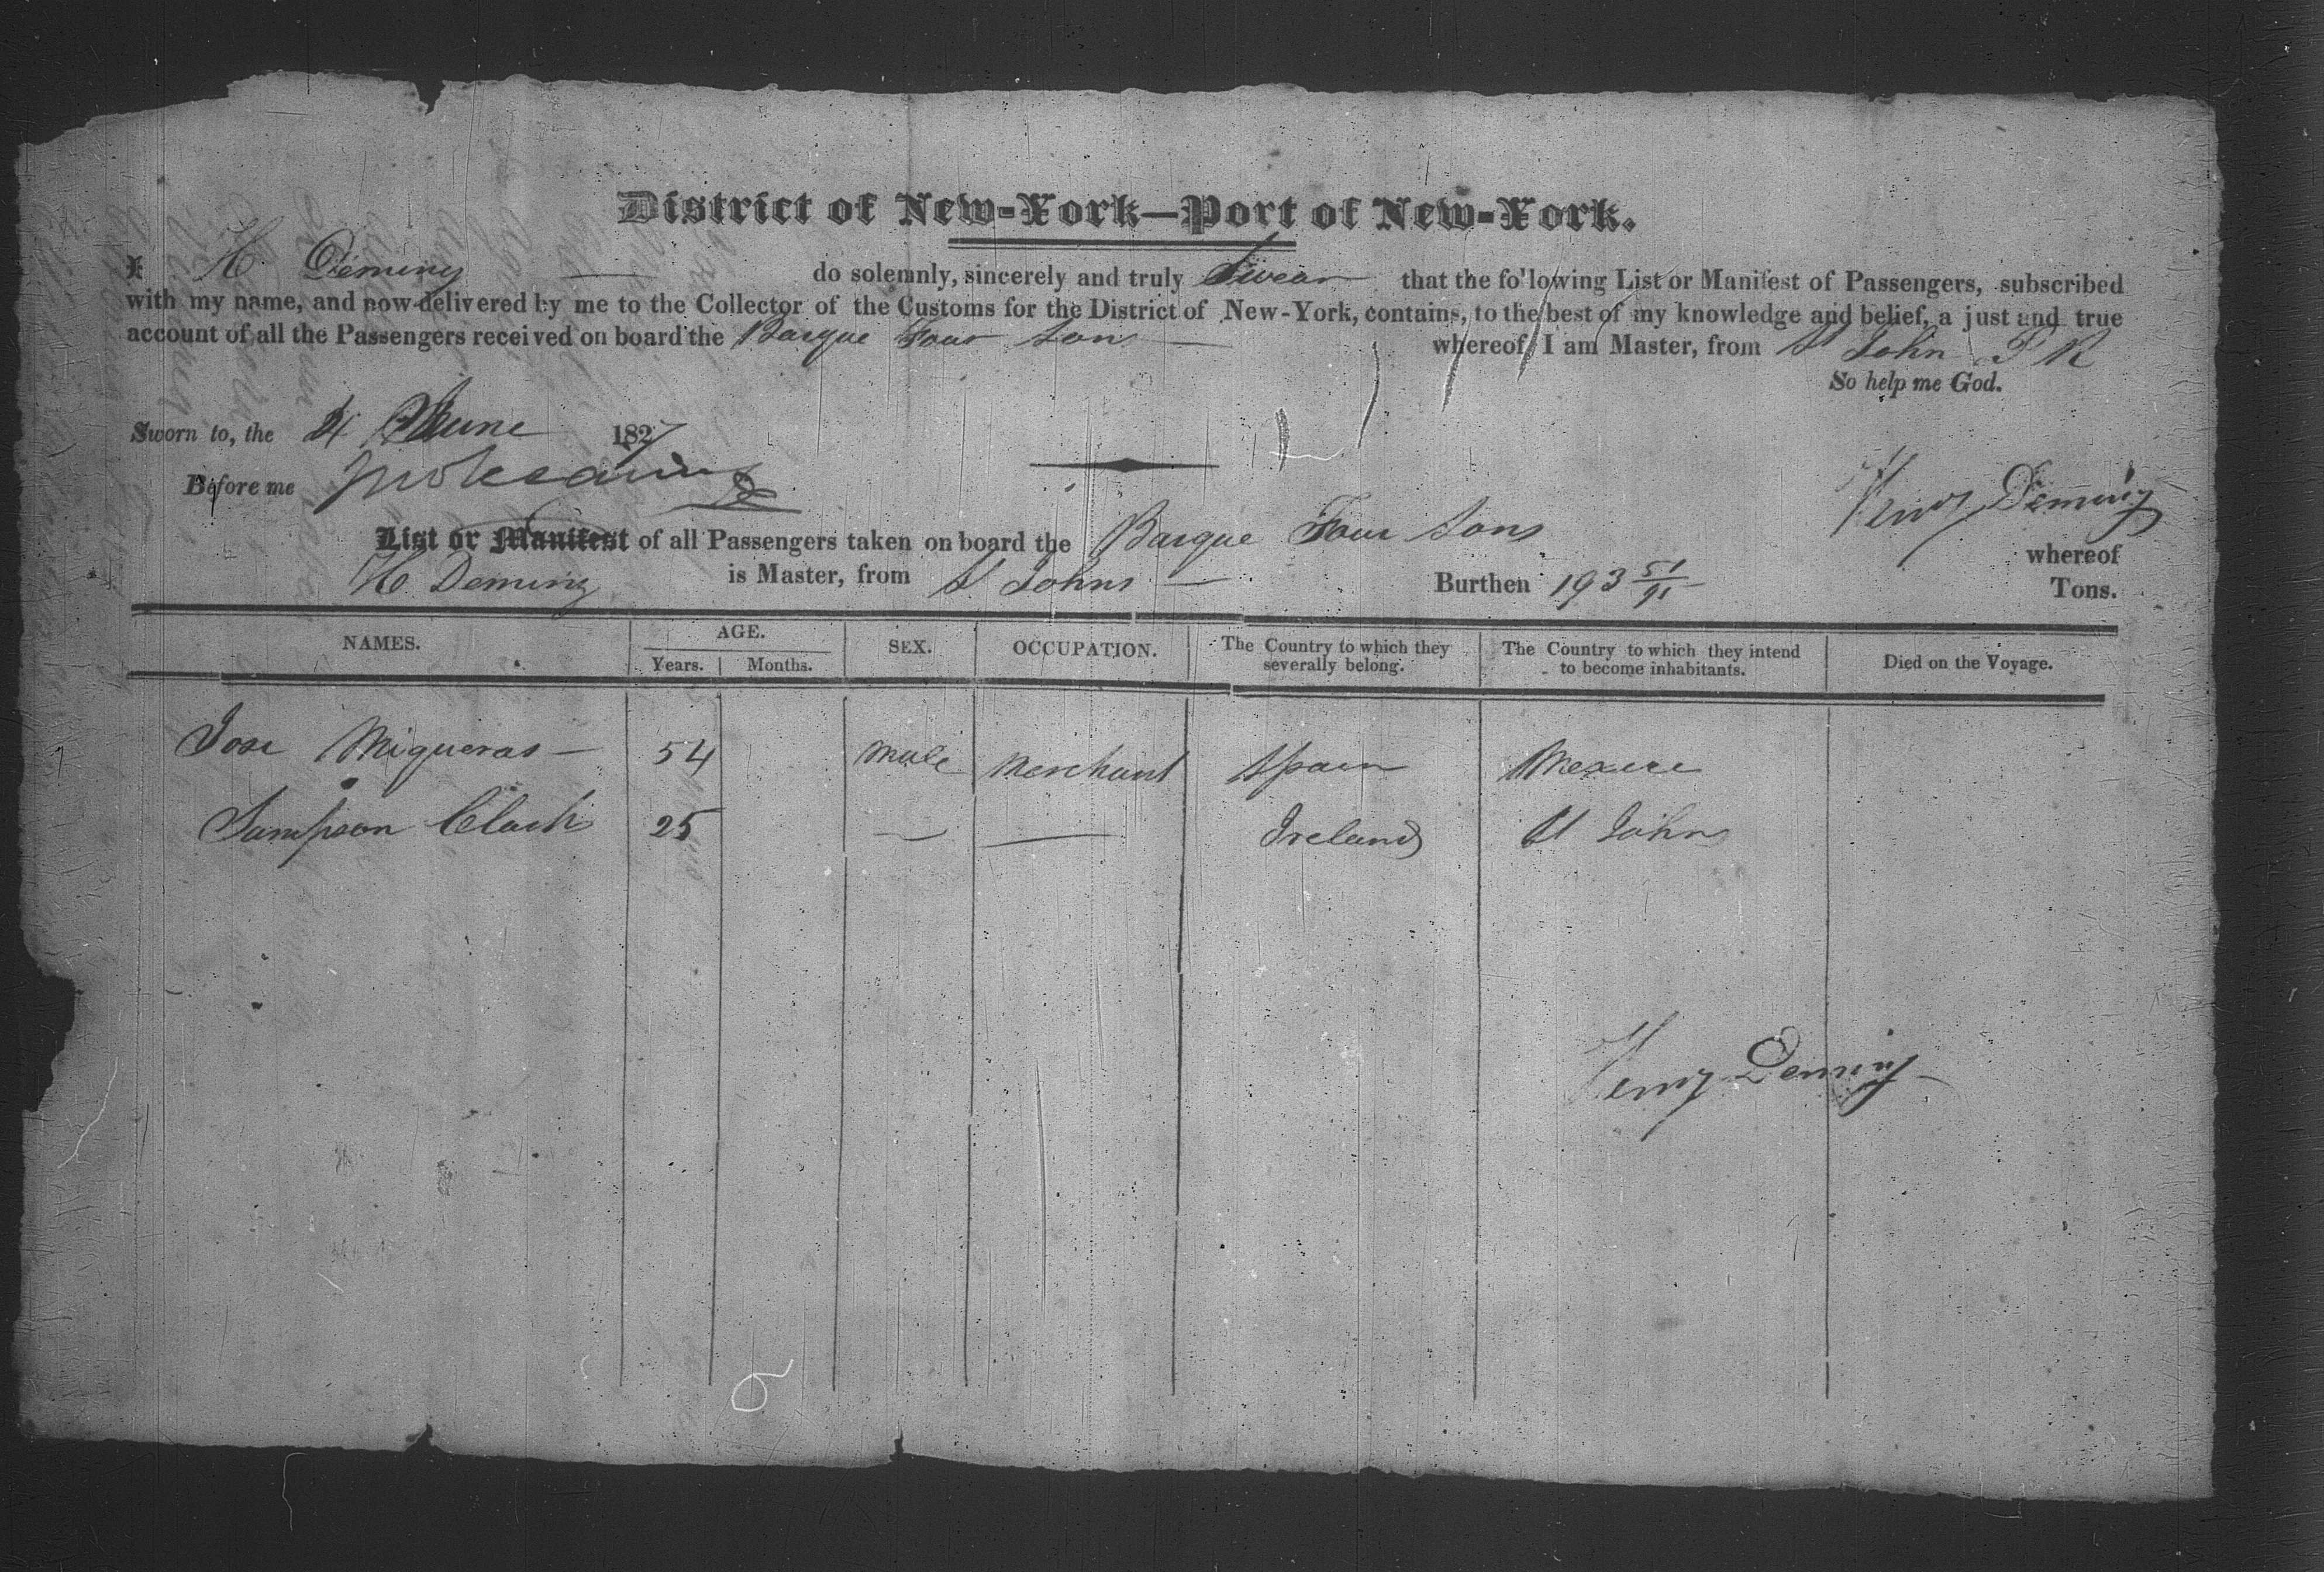 District of New-York—Port of New-York.
I H. Deming — do solemnly, sincerely and truly Swear that the following List or Manifest of Passengers, subscribed
with my name, and now delivered by me to the Collector of the Customs for the District of New-York, contains, to the best of my knowledge and belief, a just and true
account of all the Passengers received on board the Barque Four Sons — whereof I am Master, from St John P R
So help me God.
Sworn to, the 4 June 1827
Before me
Henry Deming
List or Manifest of all Passengers taken on board the Barque Four Sons whereof
H. Deming is Master, from St Johns — Burthen 193 51/95 Tons.
NAMES. AGE. Years. Months. SEX. OCCUPATION. The Country to which they severally belong. The Country to which they intend to become inhabitants. Died on the Voyage.
Jose Migueras — 54 Male Merchant Spain Mexico
Sampson Clark 25 — — Ireland St Johns
Henry Deming